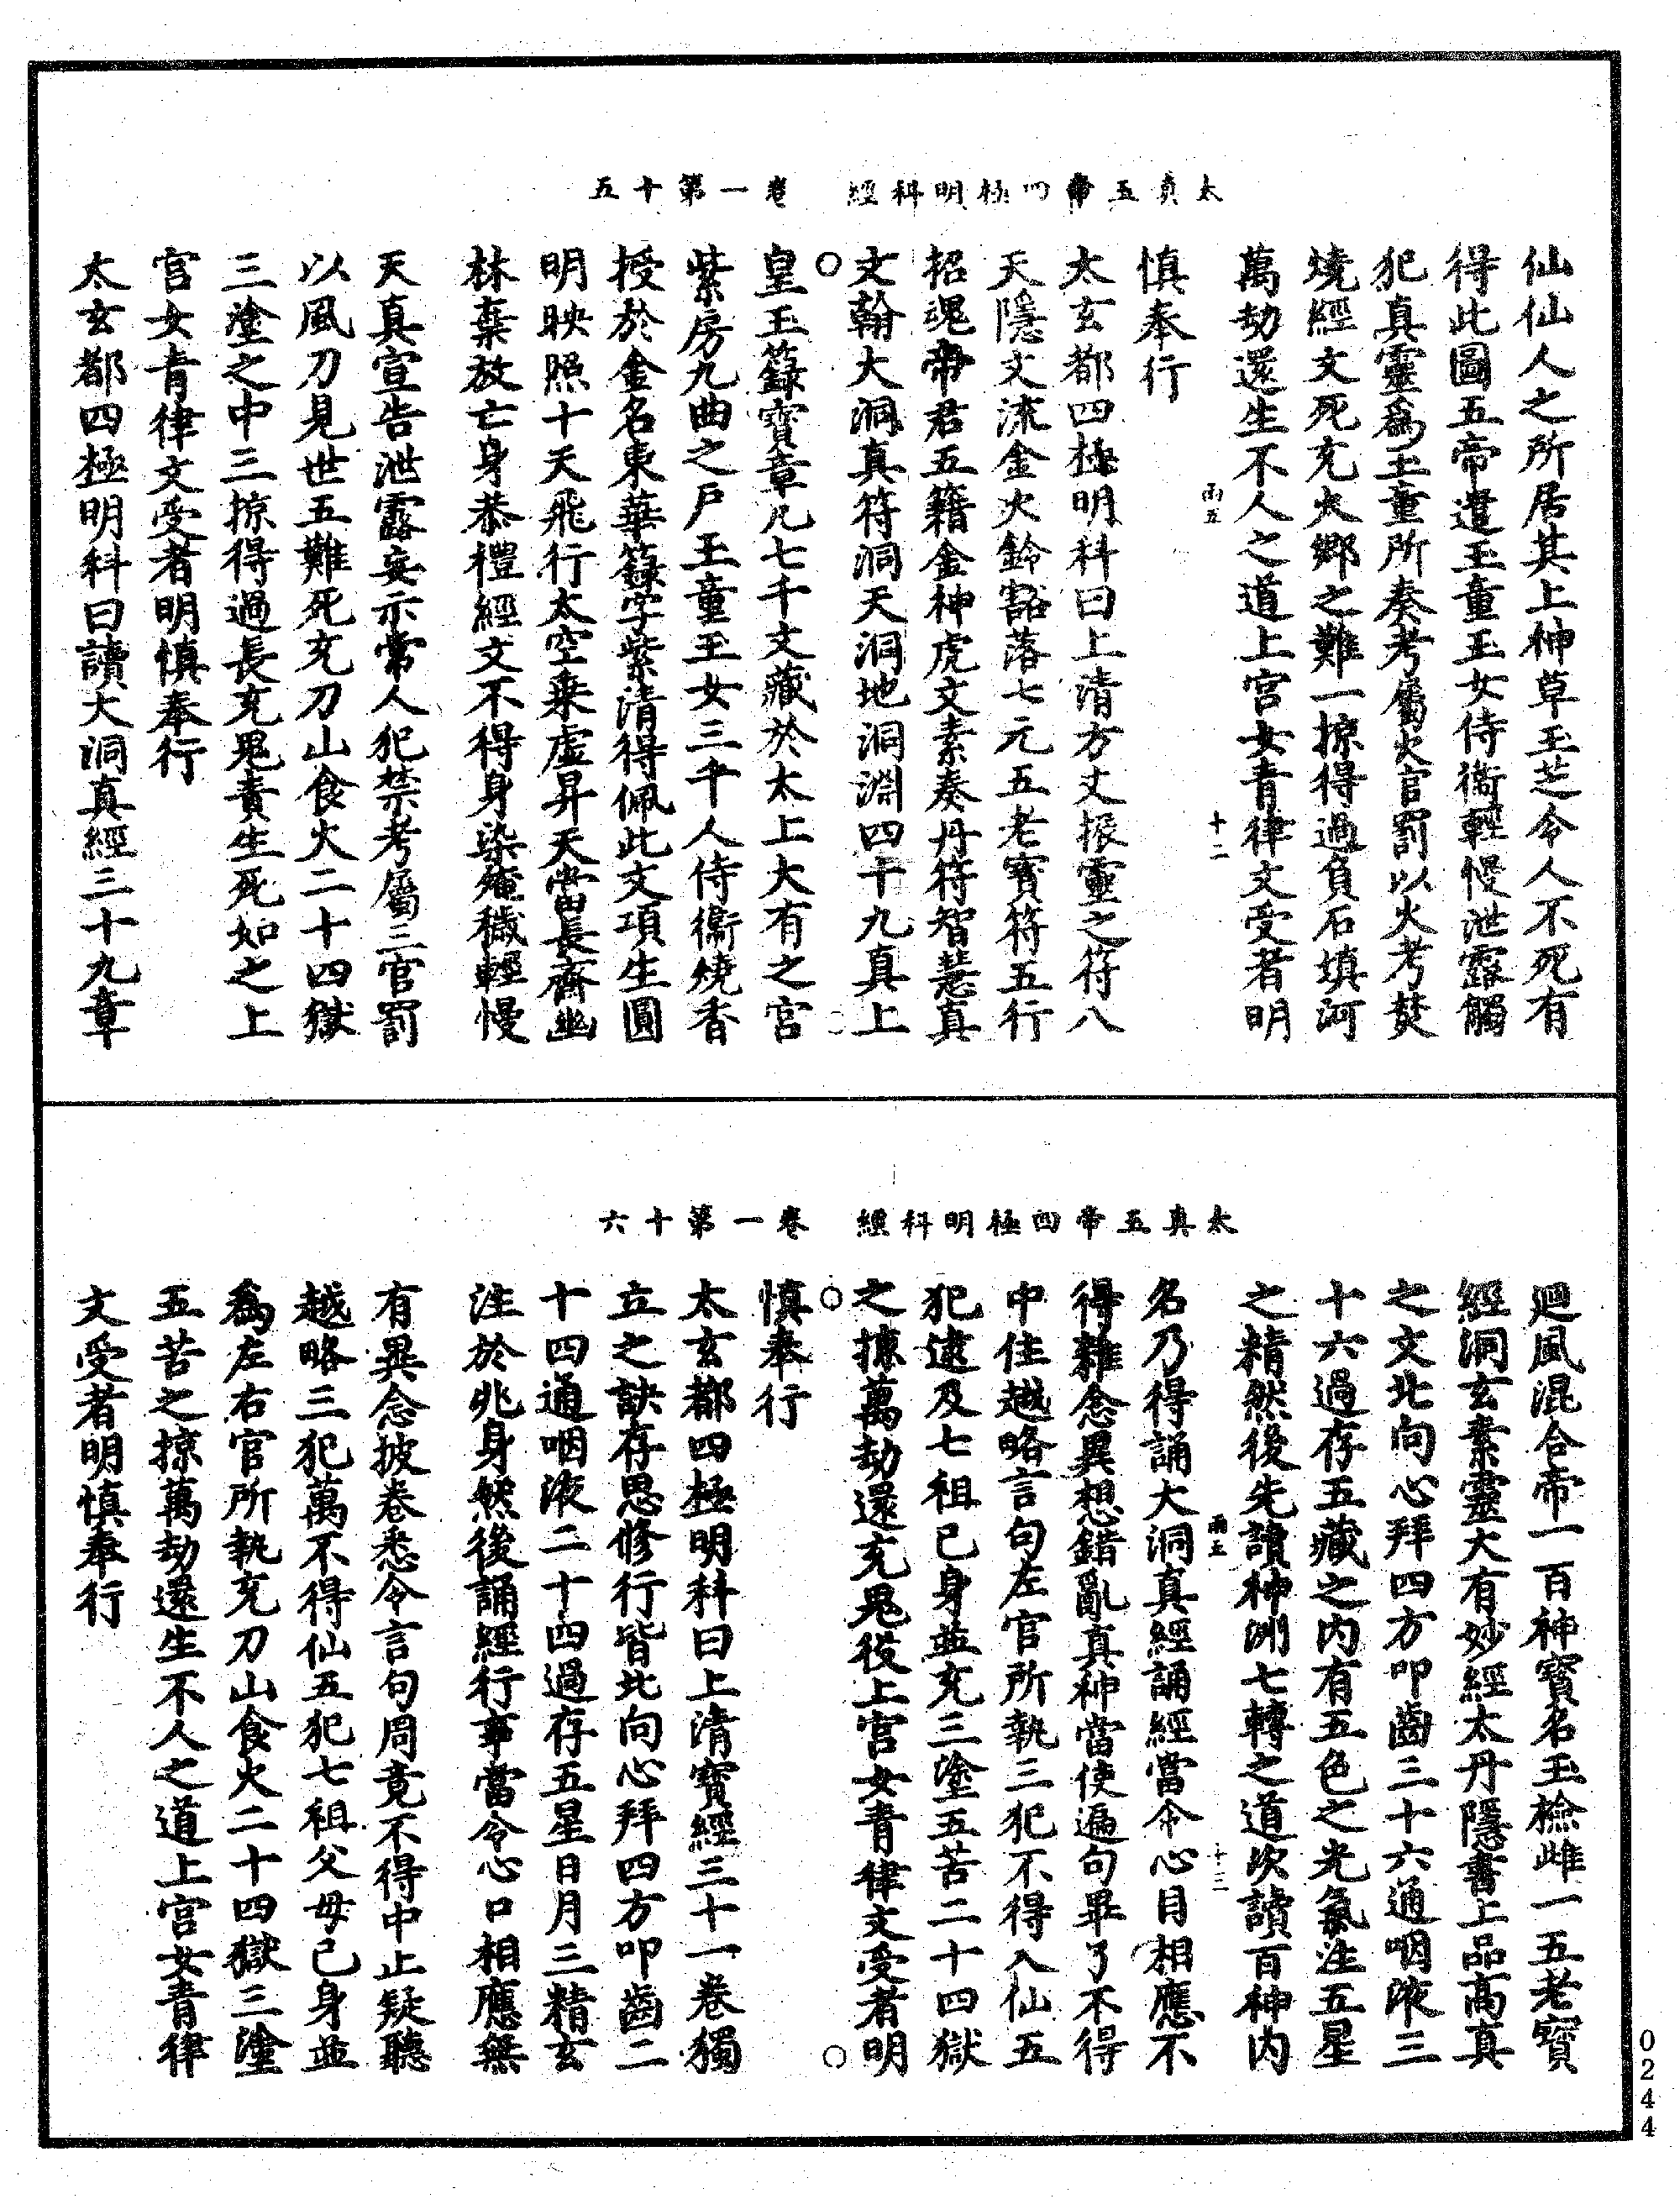 太真五帝四極明科經　卷一第十五
仙仙人之所居其上神草玉芝令人不死有
得此圖五帝遣玉童玉女侍衞輕慢泄露觸
犯真靈爲玉童所奏考屬火官罰以火考焚
燒經文死充火鄉之難一掠得過負石填河
萬劫還生不人之道上宮女青律文受者明
雨五　十二
慎奉行
太玄都四極明科曰上清方丈振靈之符八
天隱文流金火鈴豁落七元五老寶符五行
招魂帝君五籍金神虎文素奏丹符智慧真
文翰大洞真符洞天洞地洞淵四十九真上
皇玉籙寶章凡七千文藏於太上大有之宮
紫房九曲之戶玉童玉女三千人侍衞燒香
授於金名東華籙字紫清得佩此文項生圓
明映照十天飛行太空乗虛昇天天當長齋幽
林棄放亡身恭禮經文不得身染殗穢輕慢
天真宣告泄露妄示常人犯禁考屬三官罰
以風刀見世五難死充刀山食火二十四獄
三塗之中三掠得過長充鬼責生死如之上
宮女青律文受者明慎奉行
太玄都四極明科曰讀大洞真經三十九章
太真五帝四極明科經　卷一第十六
迴風混合帝一百神寶名玉檢雌一五老寶
經洞玄素靈大有妙經太丹隱書上品高真
之文北向心拜四方叩齒三十六通咽液三
十六過存五藏之內有五色之光氣注五星
之精然後先讀神淵七轉之道次讀百神內
雨五　十三
名乃得誦大洞真經誦經當令心目相應不
得雜念異想錯亂真神當使遍句畢了不得
中住越略言句左官所執三犯不得入仙五
犯逮及七祖已身並充三塗五苦二十四獄
之掠萬劫還充鬼役上宮女青律文受者明
慎奉行
太玄都四極明科曰上清寶經三十一卷獨
立之訣存思修行皆北向心拜四方叩齒二
十四通咽液二十四過存五星日月三精玄
注於兆身然後誦經行事當令心口相應無
有異念披卷悉令言句周竟不得中止疑聽
越略三犯萬不得仙五犯七祖父母已身並
爲左右官所執充刀山食火二十四獄三塗
五苦之掠萬劫還生不人之道上宮女青律
文受者明慎奉行
0244